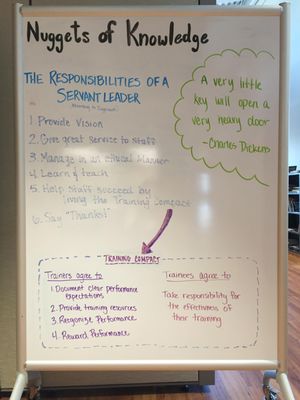 Nuggets of Knowledge
THE RESPONSIBILITIES OF A
SERVANT LEADER
1. Provide Vision
2. Give great Service to Staff
3. Manage in an ethical Manner
4. Learn & teach
5. Help Staff succeed by
living the Training Compact
6. Say "Thanks!"
A very little
key will open a
very heavy door
-Charles Dickens
TRAINING COMPACT
Trainers agree to
1. Document clear performance
expectations
2. Provide training resources
3. Recognize Performance
4. Reward Performance
Trainees agree to
Take responsibility for
the effectiveness of
their training